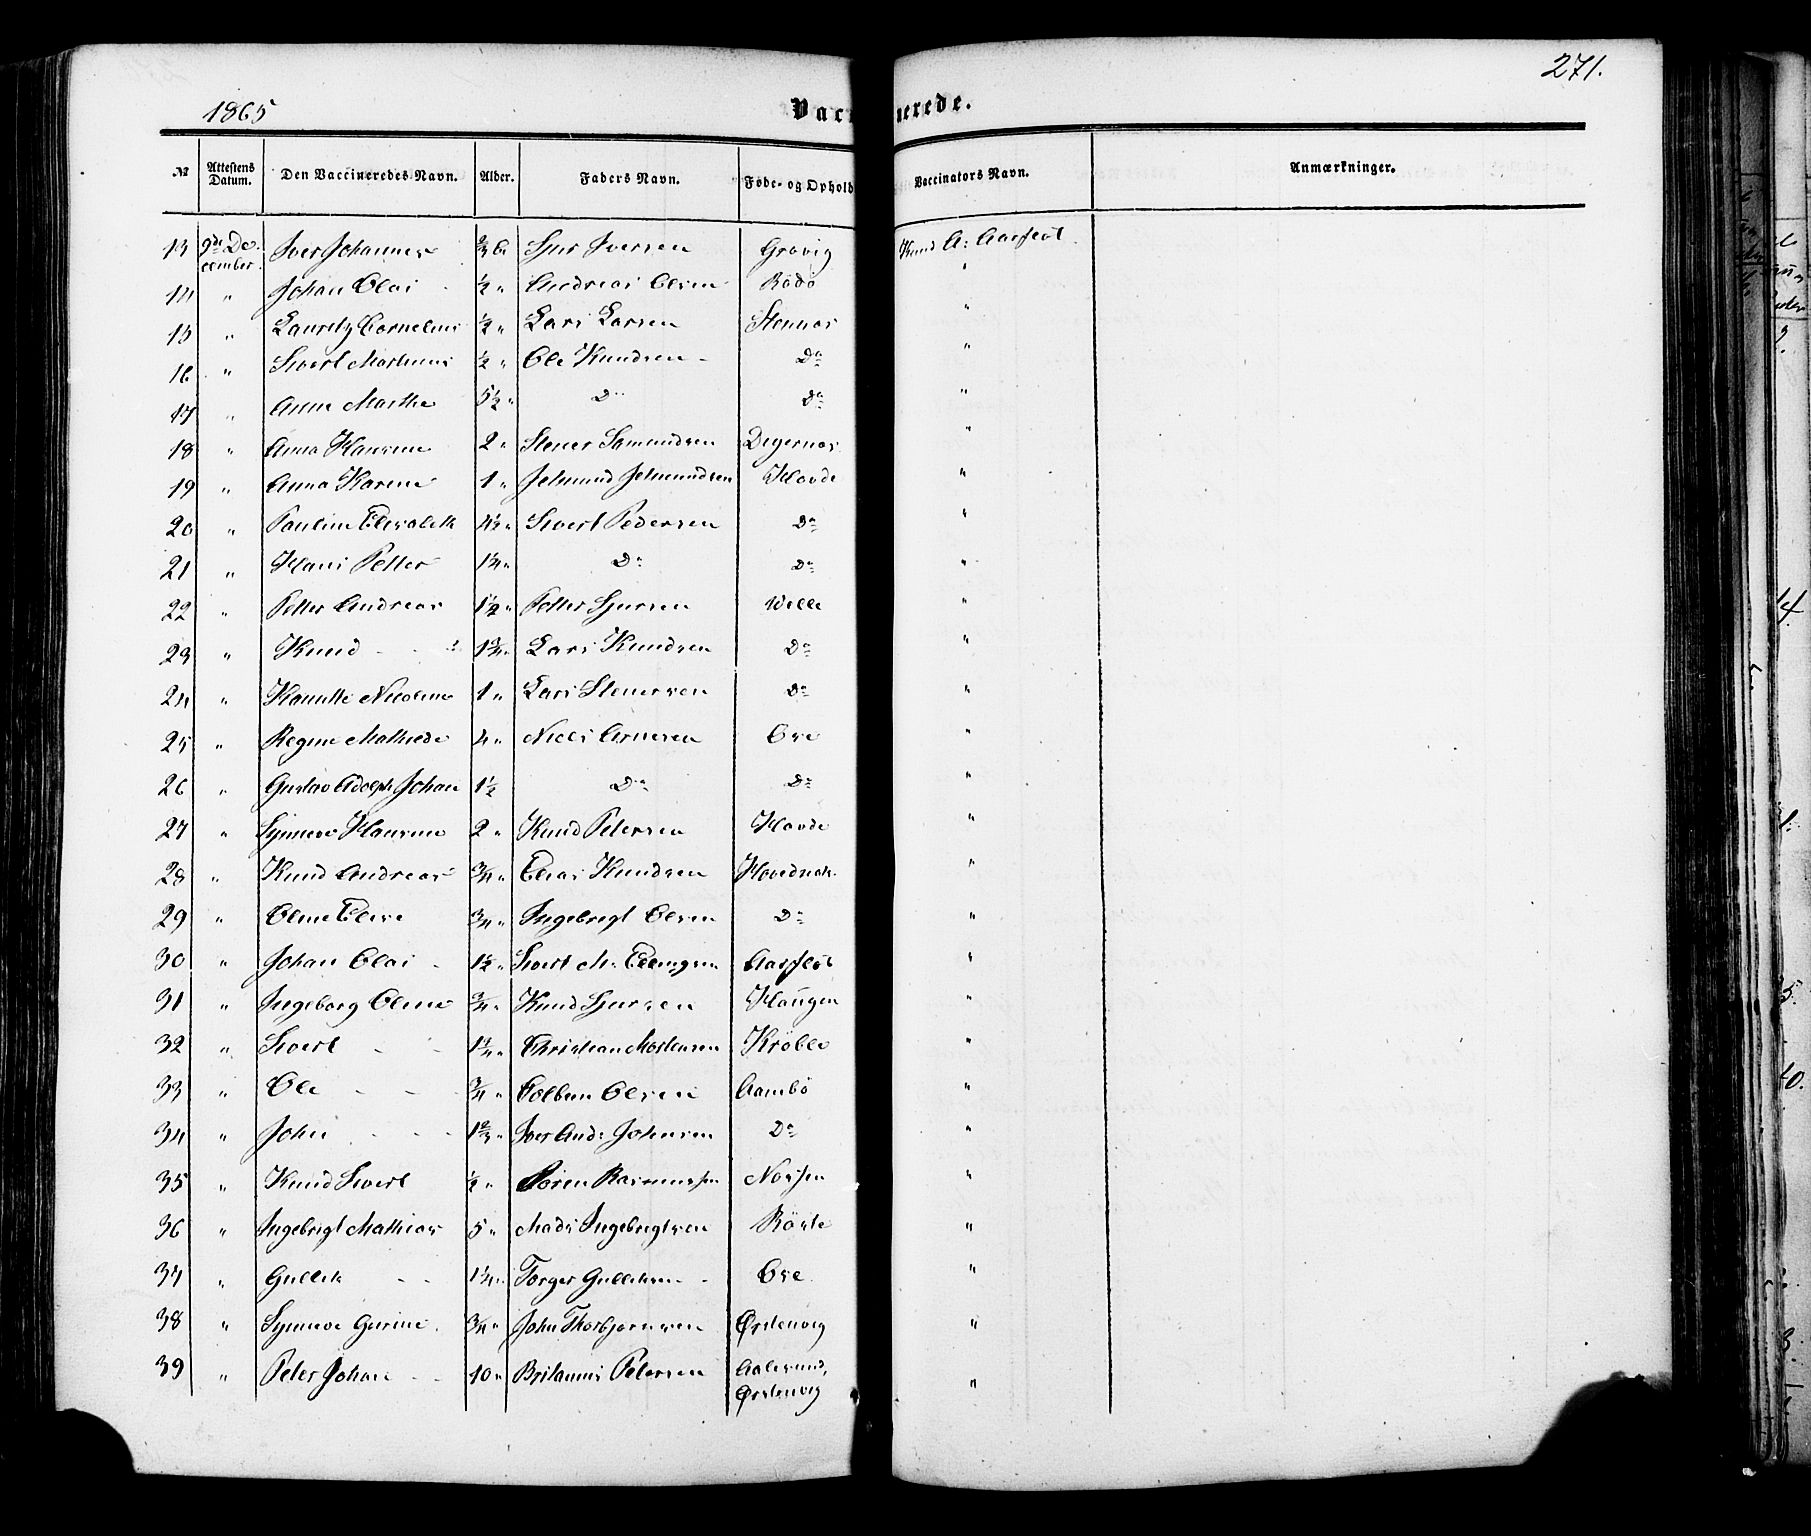 271.
1865
Vac nerede.
№ Attestens Datum. Den Vaccineredes Navn. Alder. Faders Navn. Føde- og Ophold Vaccinators Navn. Anmærkninger.
13 9de December. Iver Johannes Sjur Iversen Grøvig Knud A: Aarflot
14 " Johan Olai - ½ " Andreas Olsen Rödö "
15 " Lauritz Cornelius ½ " Lars Larsen Stennes "
16 " Sivert Martinus ½ " Ole Knudsen - Do "
17 " Anne Marthe 5½ " Do Do "
18 " Anna Hansine 2 " Stener Samundsen Digernes "
19 " Anna Karine 1 " Jetmund Jetmundsen Hovde "
20 " Pauline Elisabeth Sivert Pedersen Do "
21 " Hans Petter 1¼ " Do Do "
22 " Petter Andreas 1½ " Petter Sjursen Velle "
23 " Knud - - 1¾ " Lars Knudsen Do "
24 " Hanutte Nicoline 1 " Lars Stenersen Do "
25 " Regine Mathilde 4 " Niels Arnesen Ose "
26 " Gustav Adolph Johan 1½ Do Do "
27 " Synneve Hansine 2 " Knud Petersen Hovde "
28 " Knud Andreas ¾ " Elias Knudsen Hovdenak "
29 " Oline Elise ¾ " Ingebrigt Olsen Do "
30 " Johan Olai - 1½ " Sivert M. Ellingsen Aarflot "
31 " Ingeborg Oline ¾ " Knud Sjursen Haugen "
32 " Sivert - - 1¼ " Christian Mortensen Kröble "
33 " Ole - - ¾ " Colbein Olsen Aambö "
34 " John - - 1⅔ " Iver And: Johnsen Do "
35 " Knud Sivert ½ " Sören Rasmussen "
36 " Ingebrigt Mathias 5 " Mads Ingebrigtsen Röste "
37 " Gullik - - 1¼ " Torger Gulliksen - Ose "
38 " Synneve Gurine ¾ " John Thorbjørnsen Ørstenvig "
39 " Peter Johan - - 10 " Britanus Petersen Aalesund, Ørstenvig "